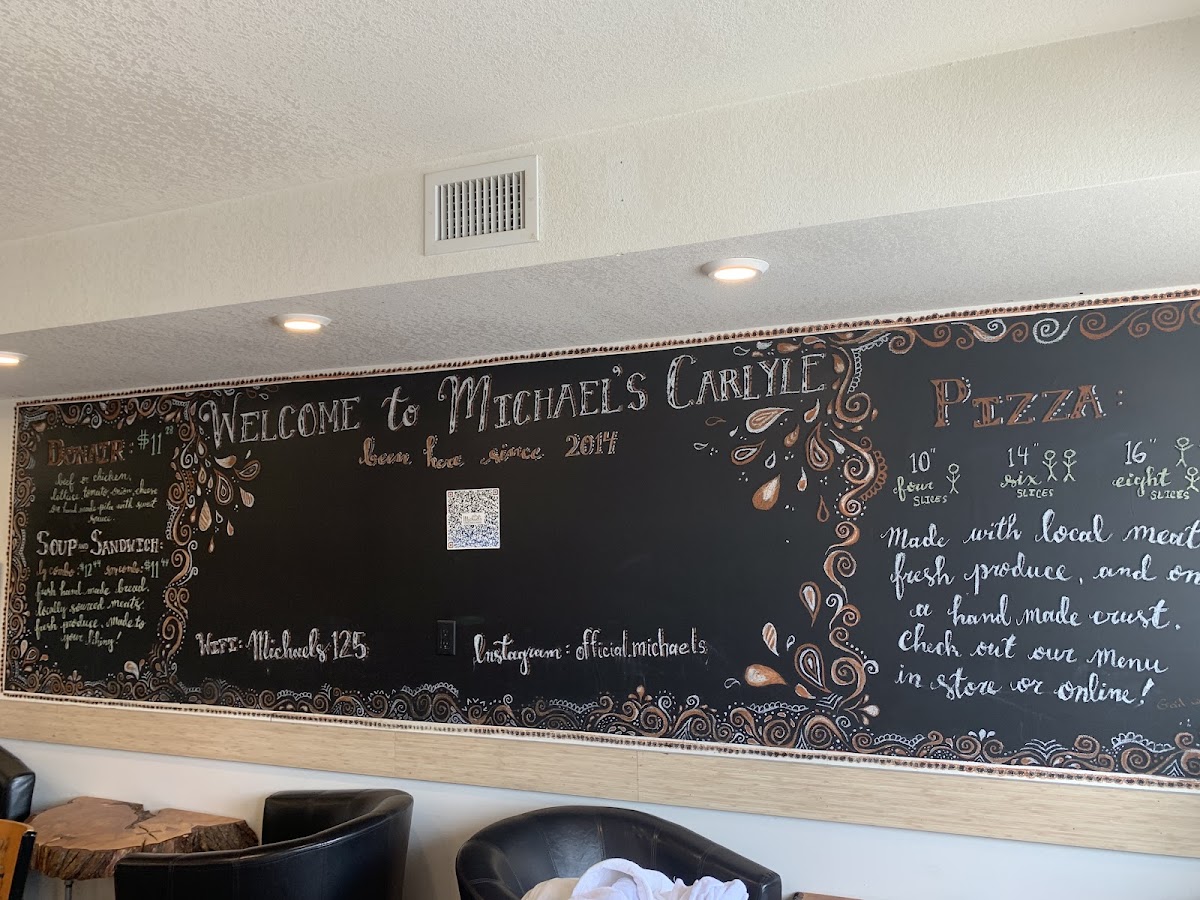 WELCOME to MICHAEL'S CARLYLE
been here since 2014
DONAIR: $11
beef or chicken,
lettuce, tomato, onion, cheese
on hand made pita with sweet
sauce.
SOUP AND SANDWICH:
fresh hand made bread,
locally sourced meats,
fresh produce, made to
your liking!
WIFI: Michaels125
Instagram: official.michaels
PIZZA:
10" four SLICES
14" six SLICES
16" eight SLICES
Made with local meat
fresh produce, and on
a hand made crust.
Check out our menu
in store or online!